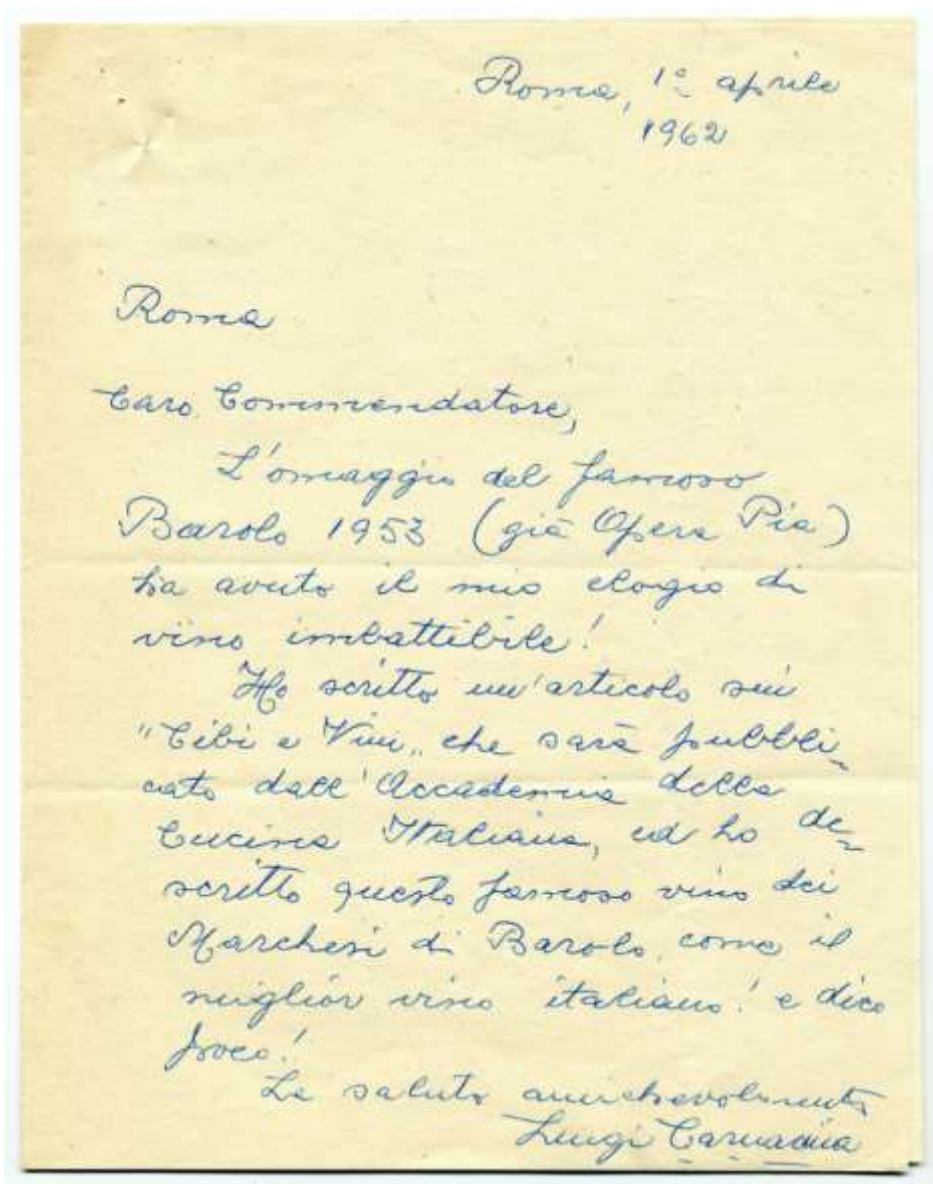 Roma, 1º aprile
1962
Roma
Caro Commendatore,
L'omaggio del famoso
Barolo 1953 (già Opera Pia)
ha avuto il mio elogio di
vino imbattibile!
Ho scritto un'articolo sui
"Cibi e Vini" che sarà pubbli=
cato dall'Accademia della
Cucina Italiana, ed ho de=
scritto questo famoso vino dei
Marchesi di Barolo, come il
miglior vino italiano! e dico
poco!
La saluto amichevolmente
Luigi Carnacina